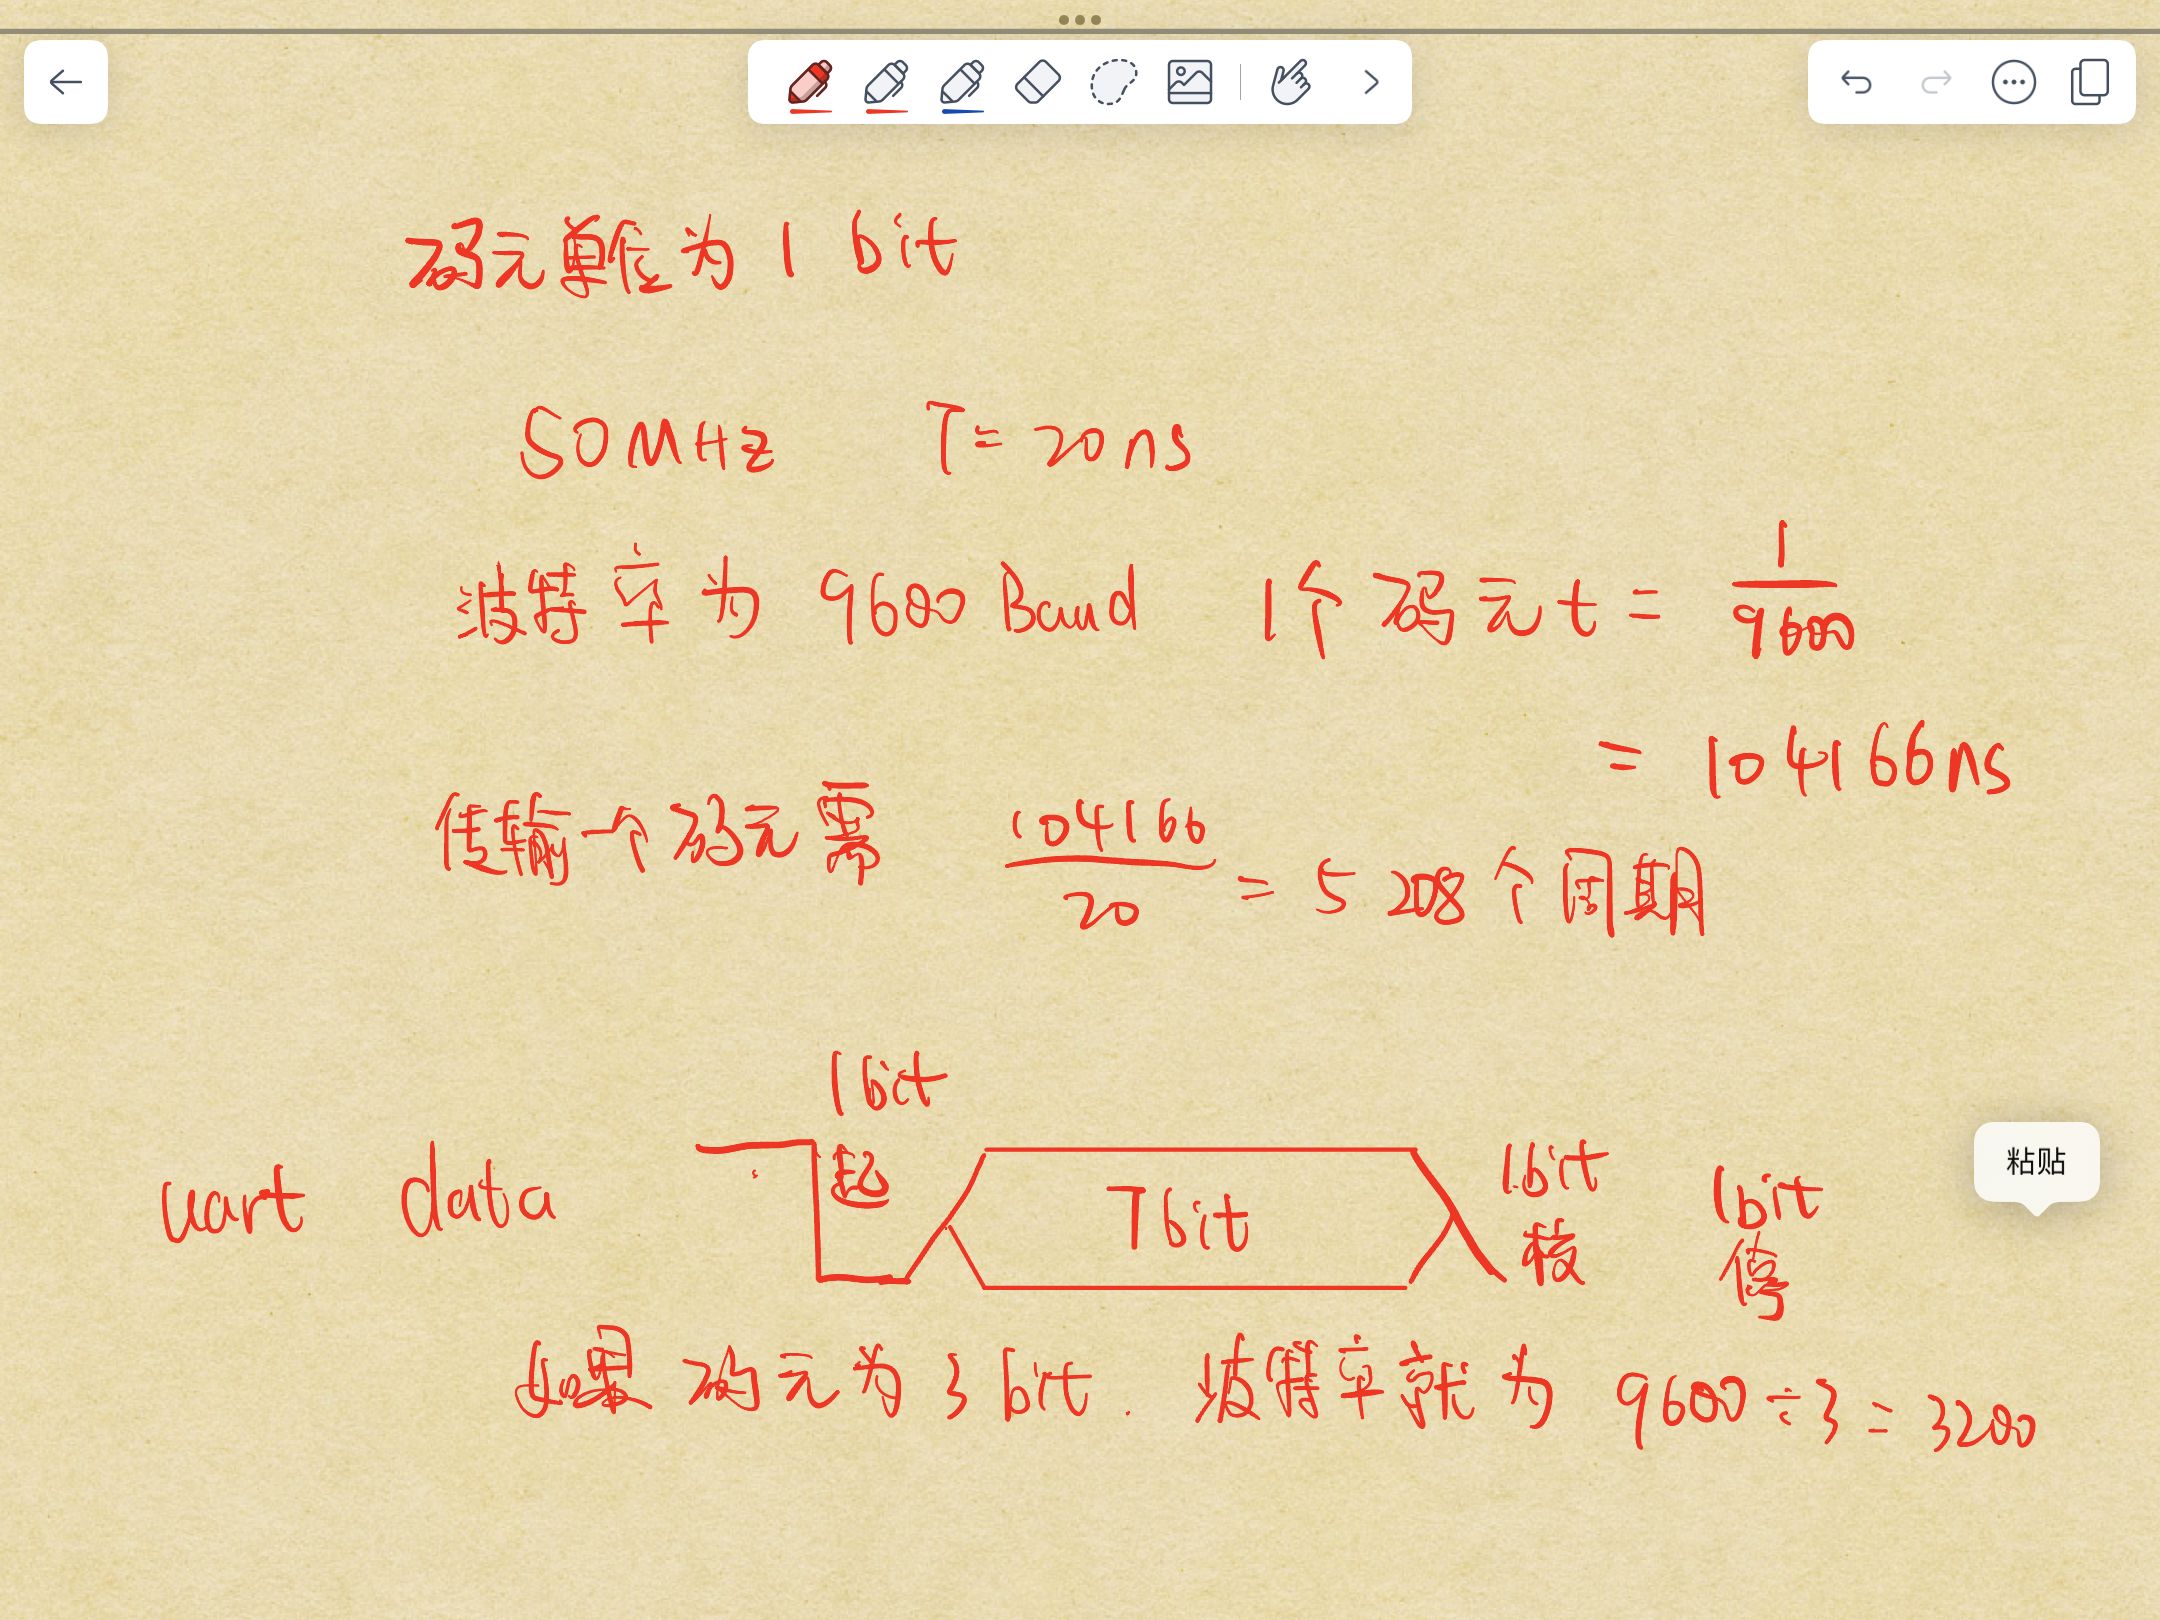 码元单位为 1 bit
50MHz T= 20ns
波特率为 9600 Baud 1个码元t = 1/9600
= 104166ns
传输一个码元需 104166/20 = 5208个周期
1bit
uart data 起 7bit 1bit 校 1bit 停
粘贴
如果码元为3bit. 波特率就为 9600÷3 = 3200